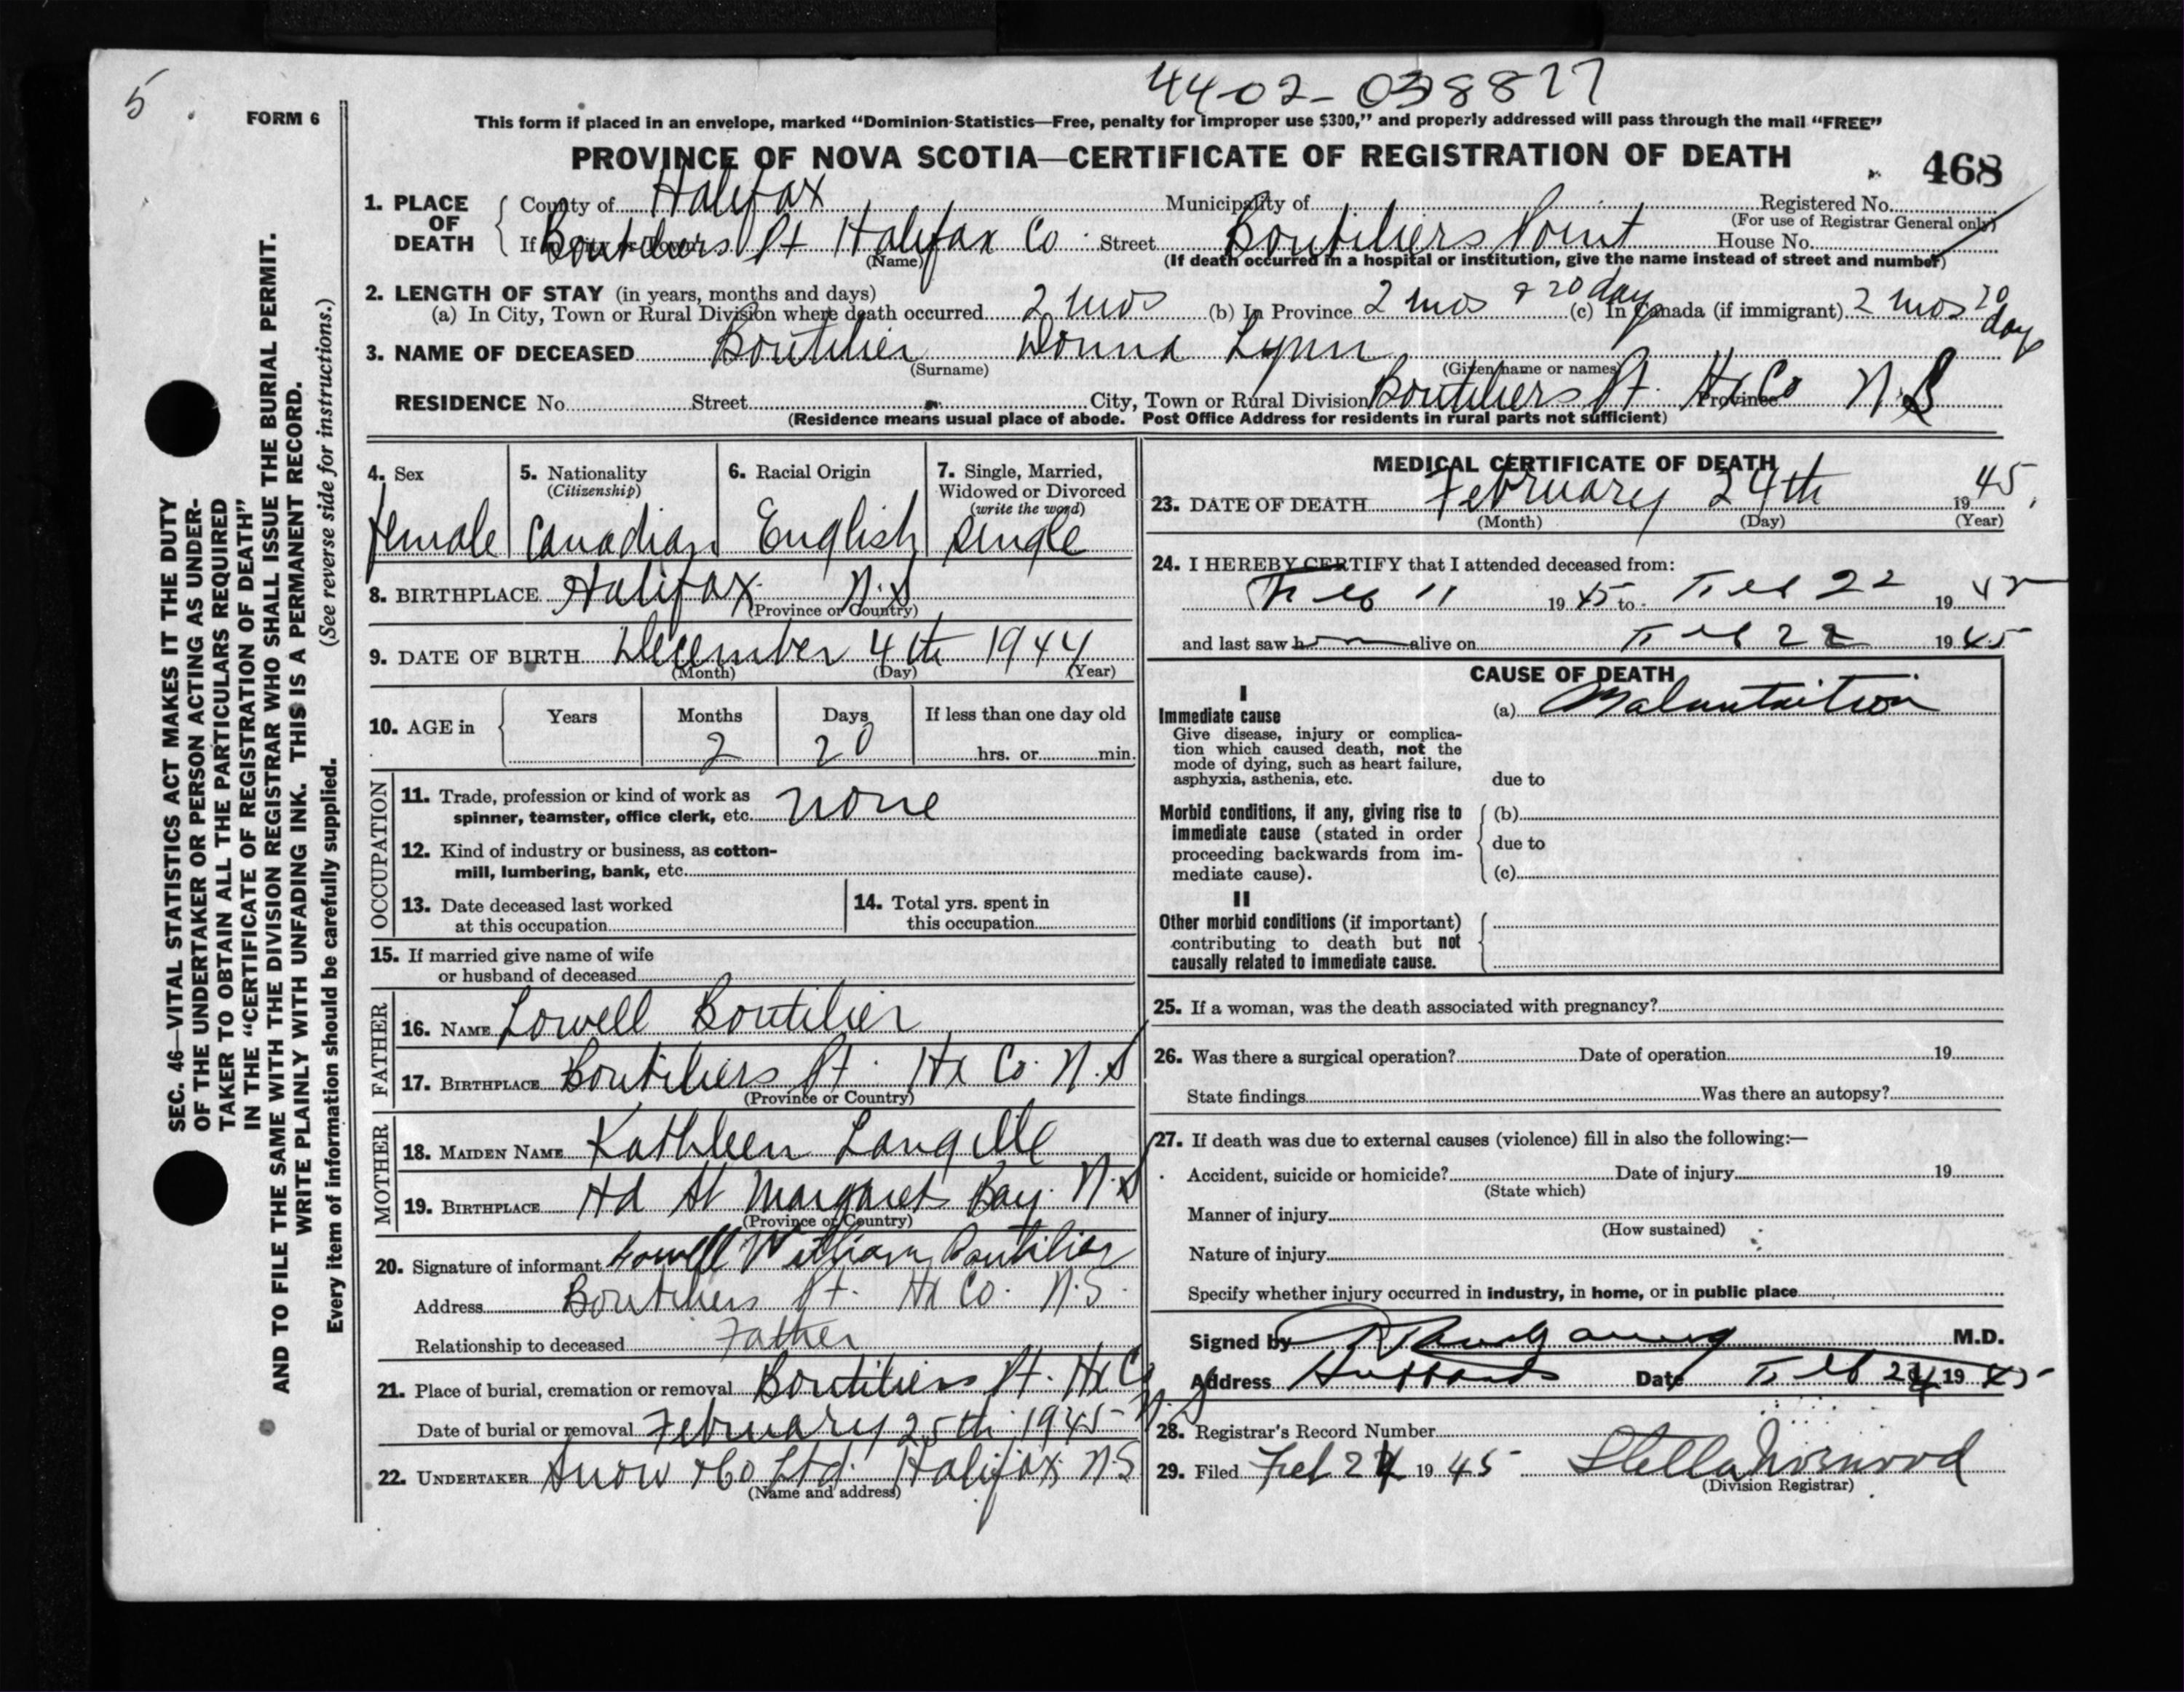 5
44-02-038877
FORM 6
This form if placed in an envelope, marked "Dominion-Statistics—Free, penalty for improper use $300," and properly addressed will pass through the mail "FREE"
PROVINCE OF NOVA SCOTIA—CERTIFICATE OF REGISTRATION OF DEATH
468
1. PLACE OF DEATH
County of Halifax Municipality of Registered No.
(For use of Registrar General only)
If in City or Town Boutiliers Pt Halifax Co Street Boutiliers Point House No.
(Name) (If death occurred in a hospital or institution, give the name instead of street and number)
2. LENGTH OF STAY (in years, months and days)
(a) In City, Town or Rural Division where death occurred 2 mos (b) In Province 2 mos & 20 day (c) In Canada (if immigrant) 2 mos 20 day
3. NAME OF DECEASED Boutilier Donna Lynn
(Surname) (Given name or names)
RESIDENCE No. Street City, Town or Rural Division Boutiliers Pt. Hx Co Province N S
(Residence means usual place of abode. Post Office Address for residents in rural parts not sufficient)
4. Sex
female
5. Nationality
(Citizenship)
Canadian
6. Racial Origin
English
7. Single, Married,
Widowed or Divorced
(write the word)
single
8. BIRTHPLACE Halifax N.S
(Province or Country)
9. DATE OF BIRTH December 4th 1944
(Month) (Day) (Year)
10. AGE in
Years Months Days If less than one day old
2 20 hrs. or min.
OCCUPATION
11. Trade, profession or kind of work as
spinner, teamster, office clerk, etc. none
12. Kind of industry or business, as cotton-
mill, lumbering, bank, etc.
13. Date deceased last worked
at this occupation
14. Total yrs. spent in
this occupation
15. If married give name of wife
or husband of deceased
FATHER
16. NAME Lowell Boutilier
17. BIRTHPLACE Boutiliers Pt. Hx Co. N.S
(Province or Country)
MOTHER
18. MAIDEN NAME Kathleen Langille
19. BIRTHPLACE Hd St Margarets Bay. N.S
(Province or Country)
20. Signature of informant Lowell William Boutilier
Address Boutiliers Pt. Hx Co. N.S.
Relationship to deceased Father
21. Place of burial, cremation or removal Boutiliers Pt. Hx Co N.S
Date of burial or removal February 25th 1945
22. UNDERTAKER Snow & Co Ltd. Halifax N.S
(Name and address)
MEDICAL CERTIFICATE OF DEATH
23. DATE OF DEATH February 24th 1945.
(Month) (Day) (Year)
24. I HEREBY CERTIFY that I attended deceased from:
Feb 11 1945 to Feb 22 1945
and last saw h alive on Feb 22 1945
CAUSE OF DEATH
I
Immediate cause
Give disease, injury or complica-
tion which caused death, not the
mode of dying, such as heart failure,
asphyxia, asthenia, etc.
(a) Malnutrition
due to
Morbid conditions, if any, giving rise to
immediate cause (stated in order
proceeding backwards from im-
mediate cause).
(b)
due to
(c)
II
Other morbid conditions (if important)
contributing to death but not
causally related to immediate cause.
25. If a woman, was the death associated with pregnancy?
26. Was there a surgical operation? Date of operation 19
State findings Was there an autopsy?
27. If death was due to external causes (violence) fill in also the following:—
Accident, suicide or homicide? Date of injury 19
(State which)
Manner of injury
(How sustained)
Nature of injury
Specify whether injury occurred in industry, in home, or in public place
Signed by M.D.
Address Hubbards Date Feb 24 1945
28. Registrar's Record Number
29. Filed Feb 24 1945 Stella
(Division Registrar)
SEC. 46—VITAL STATISTICS ACT MAKES IT THE DUTY
OF THE UNDERTAKER OR PERSON ACTING AS UNDER-
TAKER TO OBTAIN ALL THE PARTICULARS REQUIRED
IN THE "CERTIFICATE OF REGISTRATION OF DEATH"
AND TO FILE THE SAME WITH THE DIVISION REGISTRAR WHO SHALL ISSUE THE BURIAL PERMIT.
WRITE PLAINLY WITH UNFADING INK. THIS IS A PERMANENT RECORD.
Every item of information should be carefully supplied. (See reverse side for instructions.)